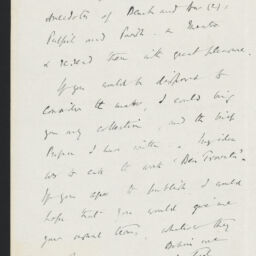 anecdotes of Bench and Bar (2);
Pulpit and Parish. a
& re-read them with great pleasure.
If you would be disposed to
consider the matter, I could bring
you my collection, and the brief
Preface I have written. My idea
was to call the work "
If you agree to publish I would
hope that you would give me
your usual terms, whatever they